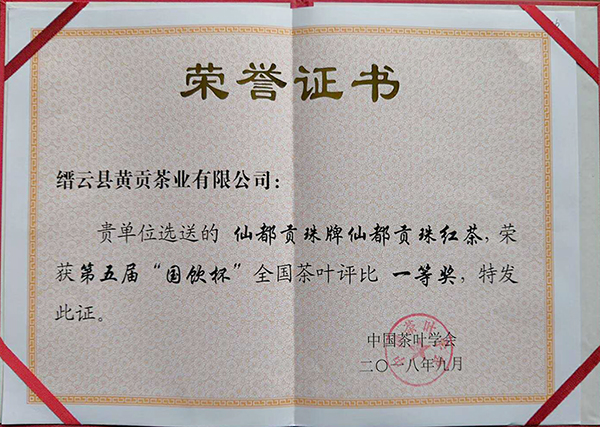 荣誉证书
缙云县黄贡茶业有限公司：
贵单位选送的 仙都贡珠牌仙都贡珠红茶，荣
获第五届“国饮杯”全国茶叶评比 一等奖，特发
此证。
中国茶叶学会
二〇一八年九月